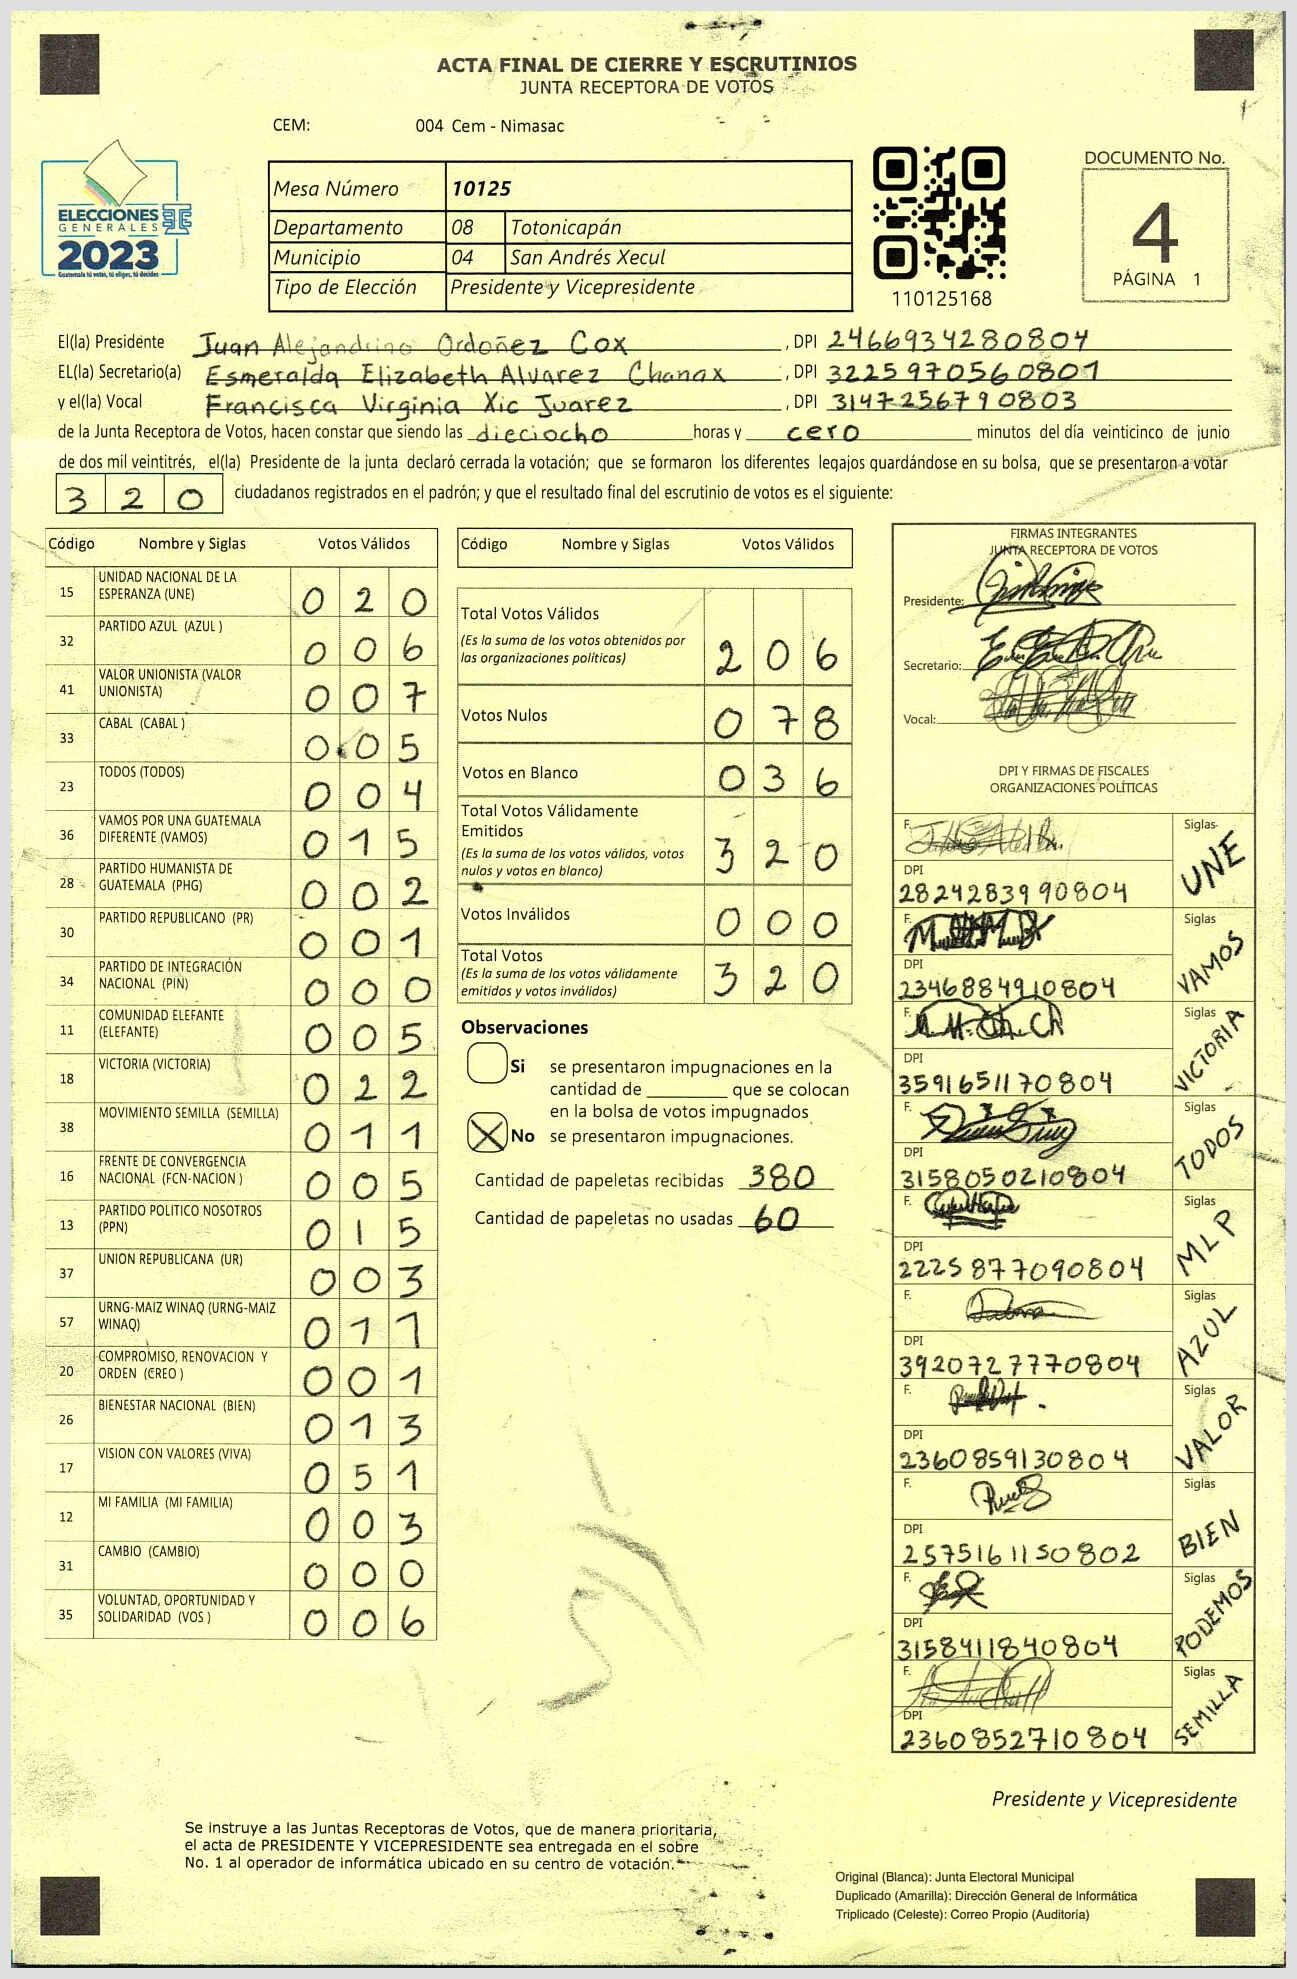 ACTA FINAL DE CIERRE Y ESCRUTINIOS
JUNTA RECEPTORA DE VOTOS
CEM: 004 Cem - Nimasac
ELECCIONES
GENERALES
2023
Guatemala tú votas, tú eliges, tú decides
Mesa Número 10125
Departamento 08 Totonicapán
Municipio 04 San Andrés Xecul
Tipo de Elección Presidente y Vicepresidente
110125168
DOCUMENTO No.
4
PÁGINA 1
El(la) Presidente Juan Alejandrino Ordoñez Cox, DPI 2466934280804
EL(la) Secretario(a) Esmeralda Elizabeth Alvarez Chanax, DPI 3225970560801
y el(la) Vocal Francisca Virginia Xic Juarez, DPI 3147256790803
de la Junta Receptora de Votos, hacen constar que siendo las dieciocho horas y cero minutos del día veinticinco de junio
de dos mil veintitrés, el(la) Presidente de la junta declaró cerrada la votación; que se formaron los diferentes legajos guardándose en su bolsa, que se presentaron a votar
320 ciudadanos registrados en el padrón; y que el resultado final del escrutinio de votos es el siguiente:
Código Nombre y Siglas Votos Válidos
15 UNIDAD NACIONAL DE LA ESPERANZA (UNE) 020
32 PARTIDO AZUL (AZUL ) 006
41 VALOR UNIONISTA (VALOR UNIONISTA) 007
33 CABAL (CABAL ) 005
23 TODOS (TODOS) 004
36 VAMOS POR UNA GUATEMALA DIFERENTE (VAMOS) 015
28 PARTIDO HUMANISTA DE GUATEMALA (PHG) 002
30 PARTIDO REPUBLICANO (PR) 001
34 PARTIDO DE INTEGRACIÓN NACIONAL (PIN) 000
11 COMUNIDAD ELEFANTE (ELEFANTE) 005
18 VICTORIA (VICTORIA) 022
38 MOVIMIENTO SEMILLA (SEMILLA) 011
16 FRENTE DE CONVERGENCIA NACIONAL (FCN-NACION ) 005
13 PARTIDO POLITICO NOSOTROS (PPN) 015
37 UNION REPUBLICANA (UR) 003
57 URNG-MAIZ WINAQ (URNG-MAIZ WINAQ) 011
20 COMPROMISO, RENOVACION Y ORDEN (CREO ) 001
26 BIENESTAR NACIONAL (BIEN) 013
17 VISION CON VALORES (VIVA) 051
12 MI FAMILIA (MI FAMILIA) 003
31 CAMBIO (CAMBIO) 000
35 VOLUNTAD, OPORTUNIDAD Y SOLIDARIDAD (VOS ) 006
Código Nombre y Siglas Votos Válidos
Total Votos Válidos 206
(Es la suma de los votos obtenidos por
las organizaciones políticas)
Votos Nulos 078
Votos en Blanco 036
Total Votos Válidamente
Emitidos 320
(Es la suma de los votos válidos, votos
nulos y votos en blanco)
Votos Inválidos 000
Total Votos 320
(Es la suma de los votos válidamente
emitidos y votos inválidos)
Observaciones
Si se presentaron impugnaciones en la
cantidad de ________ que se colocan
en la bolsa de votos impugnados
No se presentaron impugnaciones.
Cantidad de papeletas recibidas 380
Cantidad de papeletas no usadas 60
FIRMAS INTEGRANTES
JUNTA RECEPTORA DE VOTOS
Presidente:
Secretario:
Vocal:
DPI Y FIRMAS DE FISCALES
ORGANIZACIONES POLÍTICAS
F. Siglas UNE
DPI 2824283990804
F. Siglas VAMOS
DPI 2346884910804
F. Siglas VICTORIA
DPI 3591651170804
F. Siglas TODOS
DPI 3158050210804
F. Siglas MLP
DPI 2225877090804
F. Siglas AZUL
DPI 3920727770804
F. Siglas VALOR
DPI 2360859130804
F. Siglas BIEN
DPI 2575161150802
F. Siglas PODEMOS
DPI 3158411840804
F. Siglas SEMILLA
DPI 2360852710804
Presidente y Vicepresidente
Se instruye a las Juntas Receptoras de Votos, que de manera prioritaria,
el acta de PRESIDENTE Y VICEPRESIDENTE sea entregada en el sobre
No. 1 al operador de informática ubicado en su centro de votación.
Original (Blanca): Junta Electoral Municipal
Duplicado (Amarilla): Dirección General de Informática
Triplicado (Celeste): Correo Propio (Auditoría)